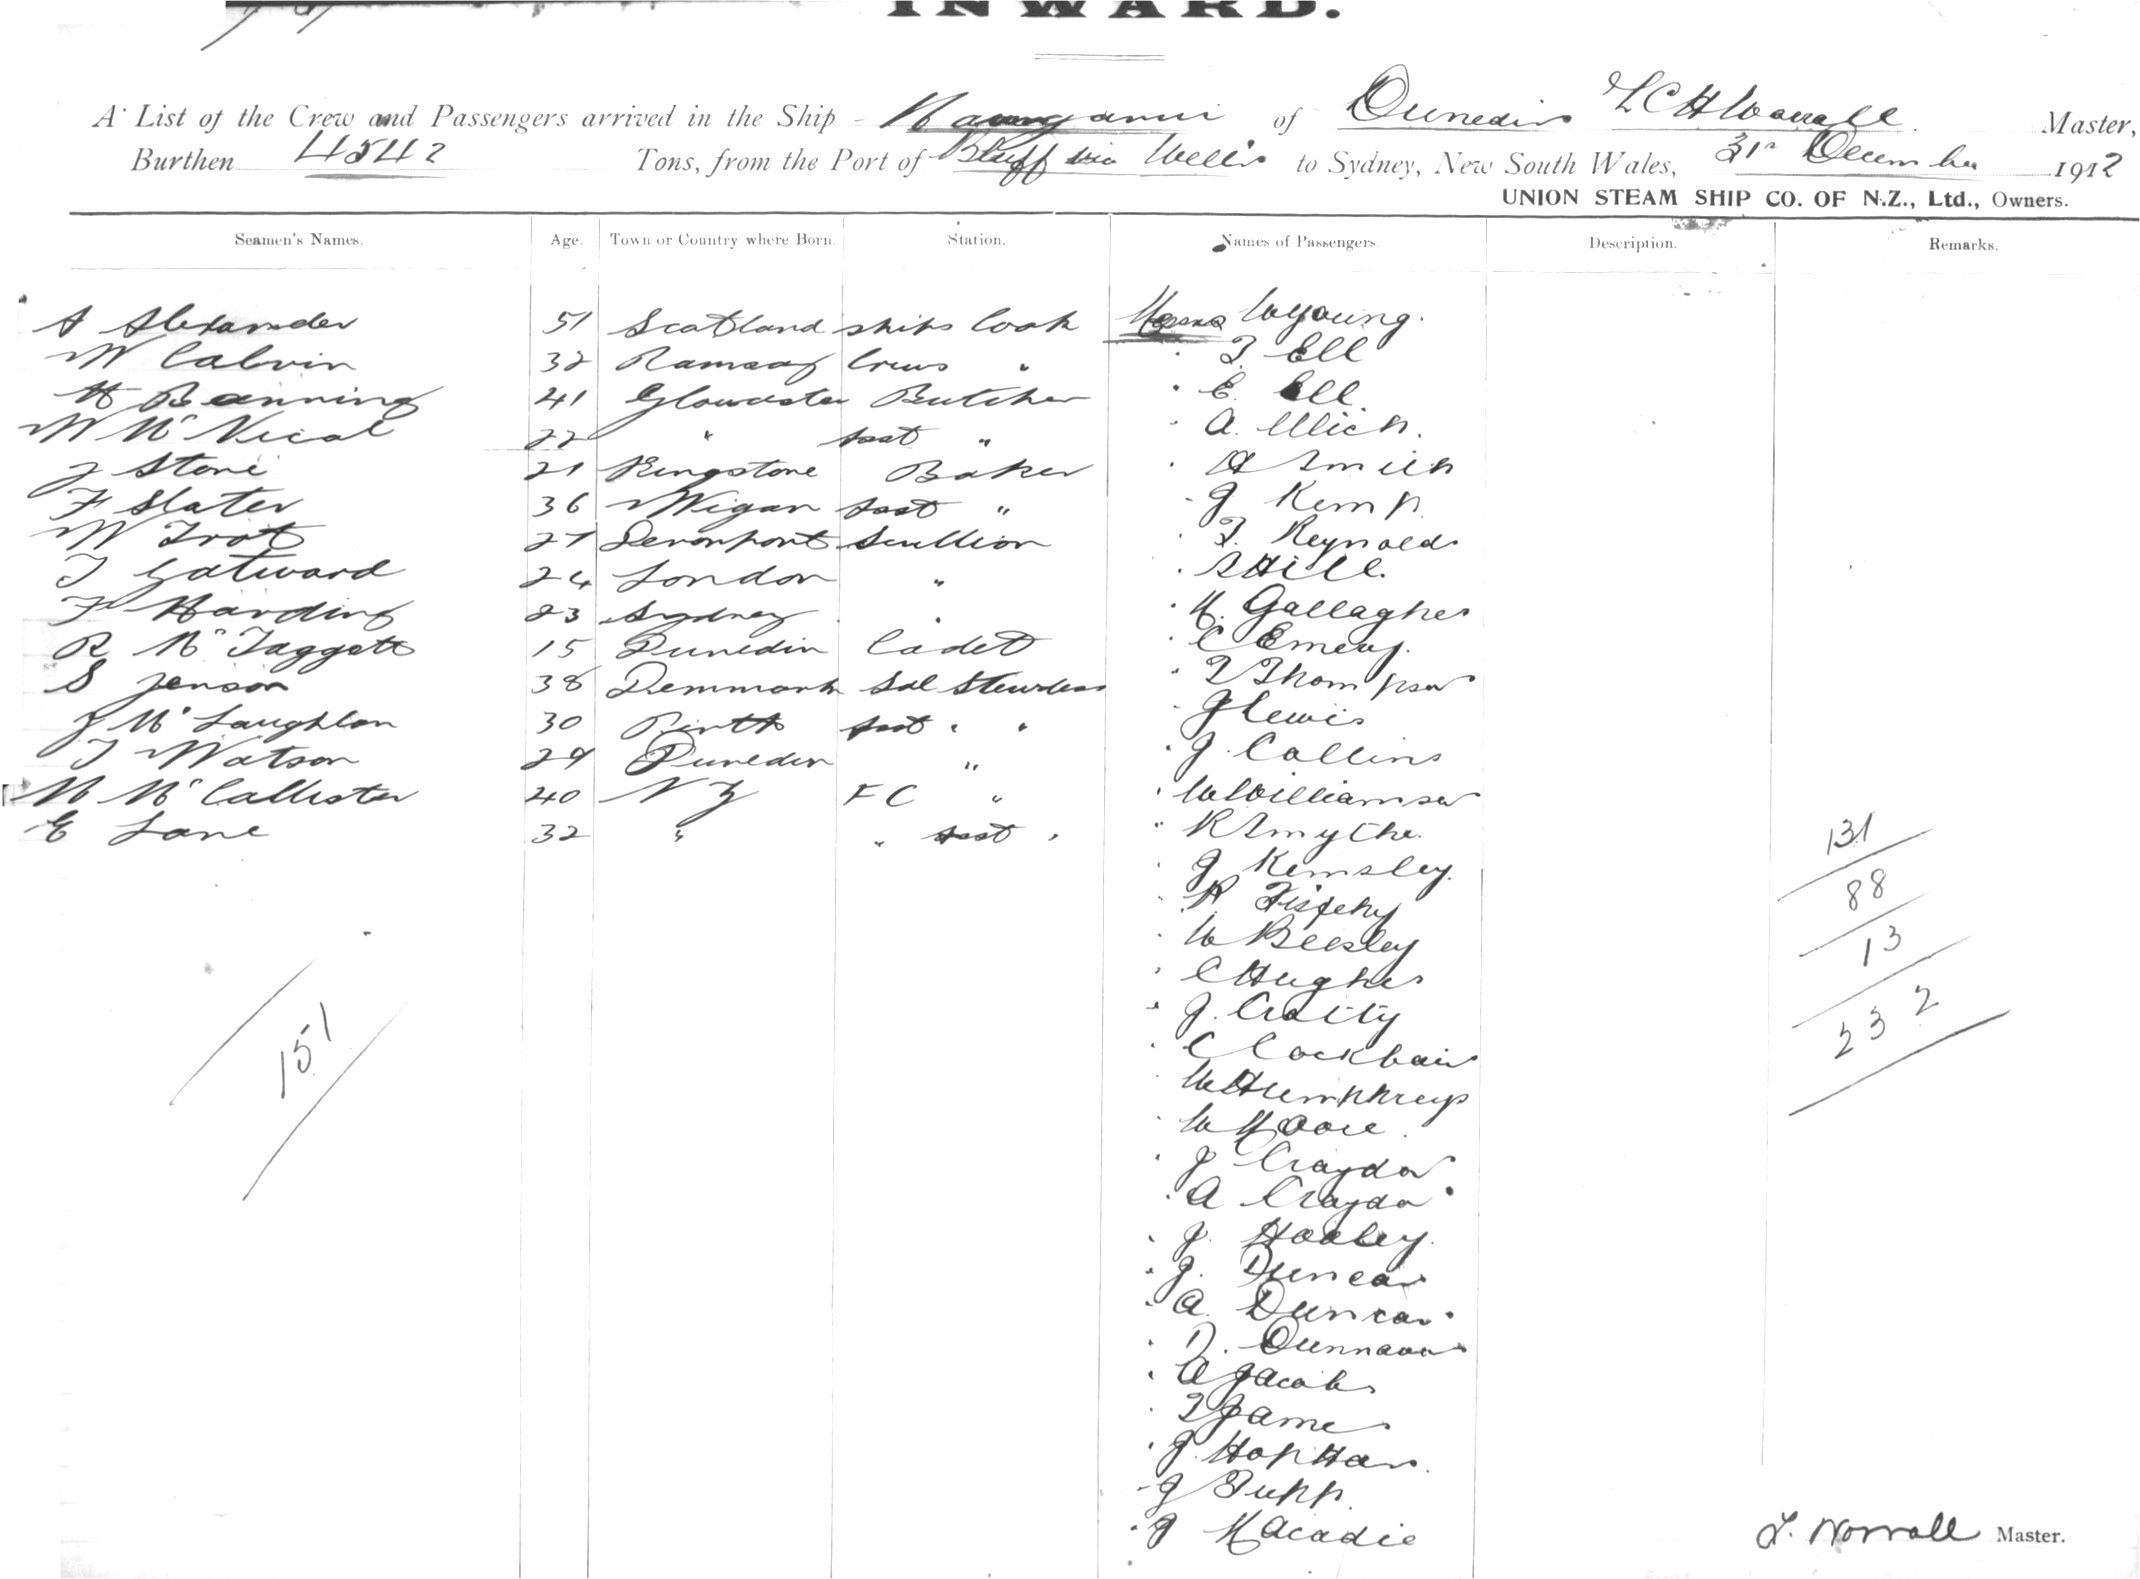 INWARD.
A List of the Crew and Passengers arrived in the Ship of Dunedin L C H Worrall Master,
Burthen 4542 Tons, from the Port of Bluff via Well'n to Sydney, New South Wales, 31st December 1912
UNION STEAM SHIP CO. OF N.Z., Ltd., Owners.
Seamen's Names. Age. Town or Country where Born. Station. Names of Passengers. Description. Remarks.
A Alexander 51 Scotland ships Cook Messrs W Young.
W Calvin 32 Ramsay Crews " " T. Ell
H Banning 41 Gloucester Butcher " E. Ell
W Mc Nical 22 " Asst " " A.
J Stone 21 Kingstone Baker " A Smith
F Slater 36 Wigan Asst " " J Kemp
W Trot 27 Devonport Scullion " T. Reynolds
T Gatward 24 London " " S Hill.
F Harding 23 Sydney " " M. Gallagher
R Mc Taggett 15 Dunedin Cadet " C Emery.
S Jenson 38 Demmark Sal Stewdess " T Thompson
J Mc Laughlan 30 Perth Asst " " J Lewis
T Watson 29 Dunedin " " J. Collins
M Mc Callister 40 N Z FC " " W Williamson
E Lane 32 " " Asst " " R Smythe.
" J Kemsley.
" R
" W Beesley
" C Hughes
" J.
" C Cockbain
W Humphreys
" W Moore.
" J Craydon
" A Craydon
" J. Hooley.
" J. Duncan
" A. Duncan
" D.
" A Jacobs
" T James
" J. Hophan.
" J Tupp.
" J Macadie
131
88
13
232
151
L. Worrall Master.